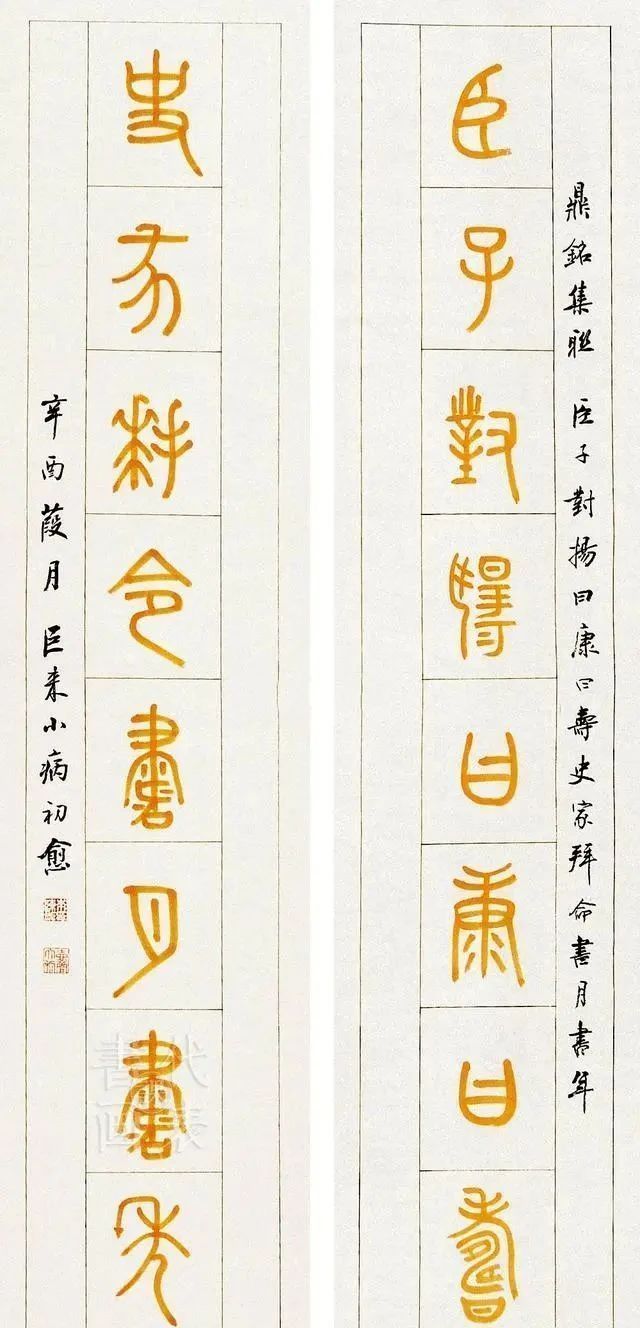 鼎銘集聯 臣子對揚曰康曰壽史家拜命書月書年
臣子對揚曰康曰壽
史家拜令書月書年
辛酉葭月 巨來小病初愈